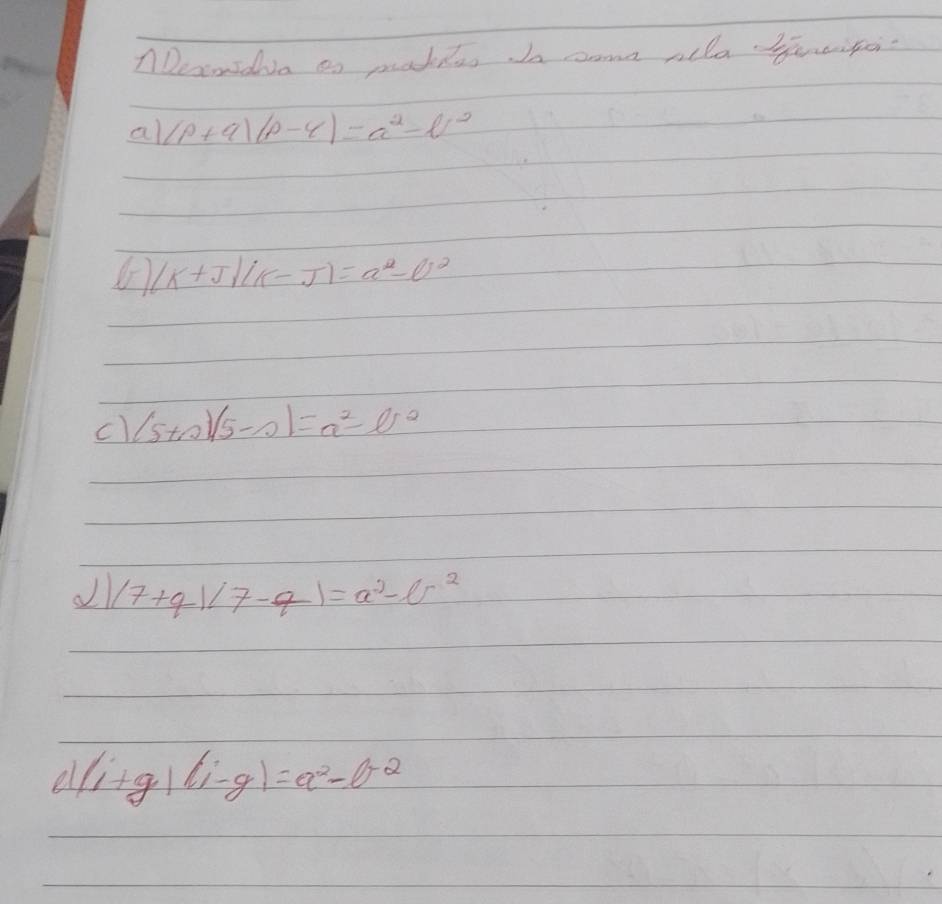 1) Desenvolva os produtos da soma pela diferença.
a) (p+q)(p-q)=a²-b²
b) (K+J)(K-J)=a²-b²
c) (5+s)(5-s)=a²-b²
d) (7+q)(7-q)=a²-b²
e) (i+g)(i-g)=a²-b²